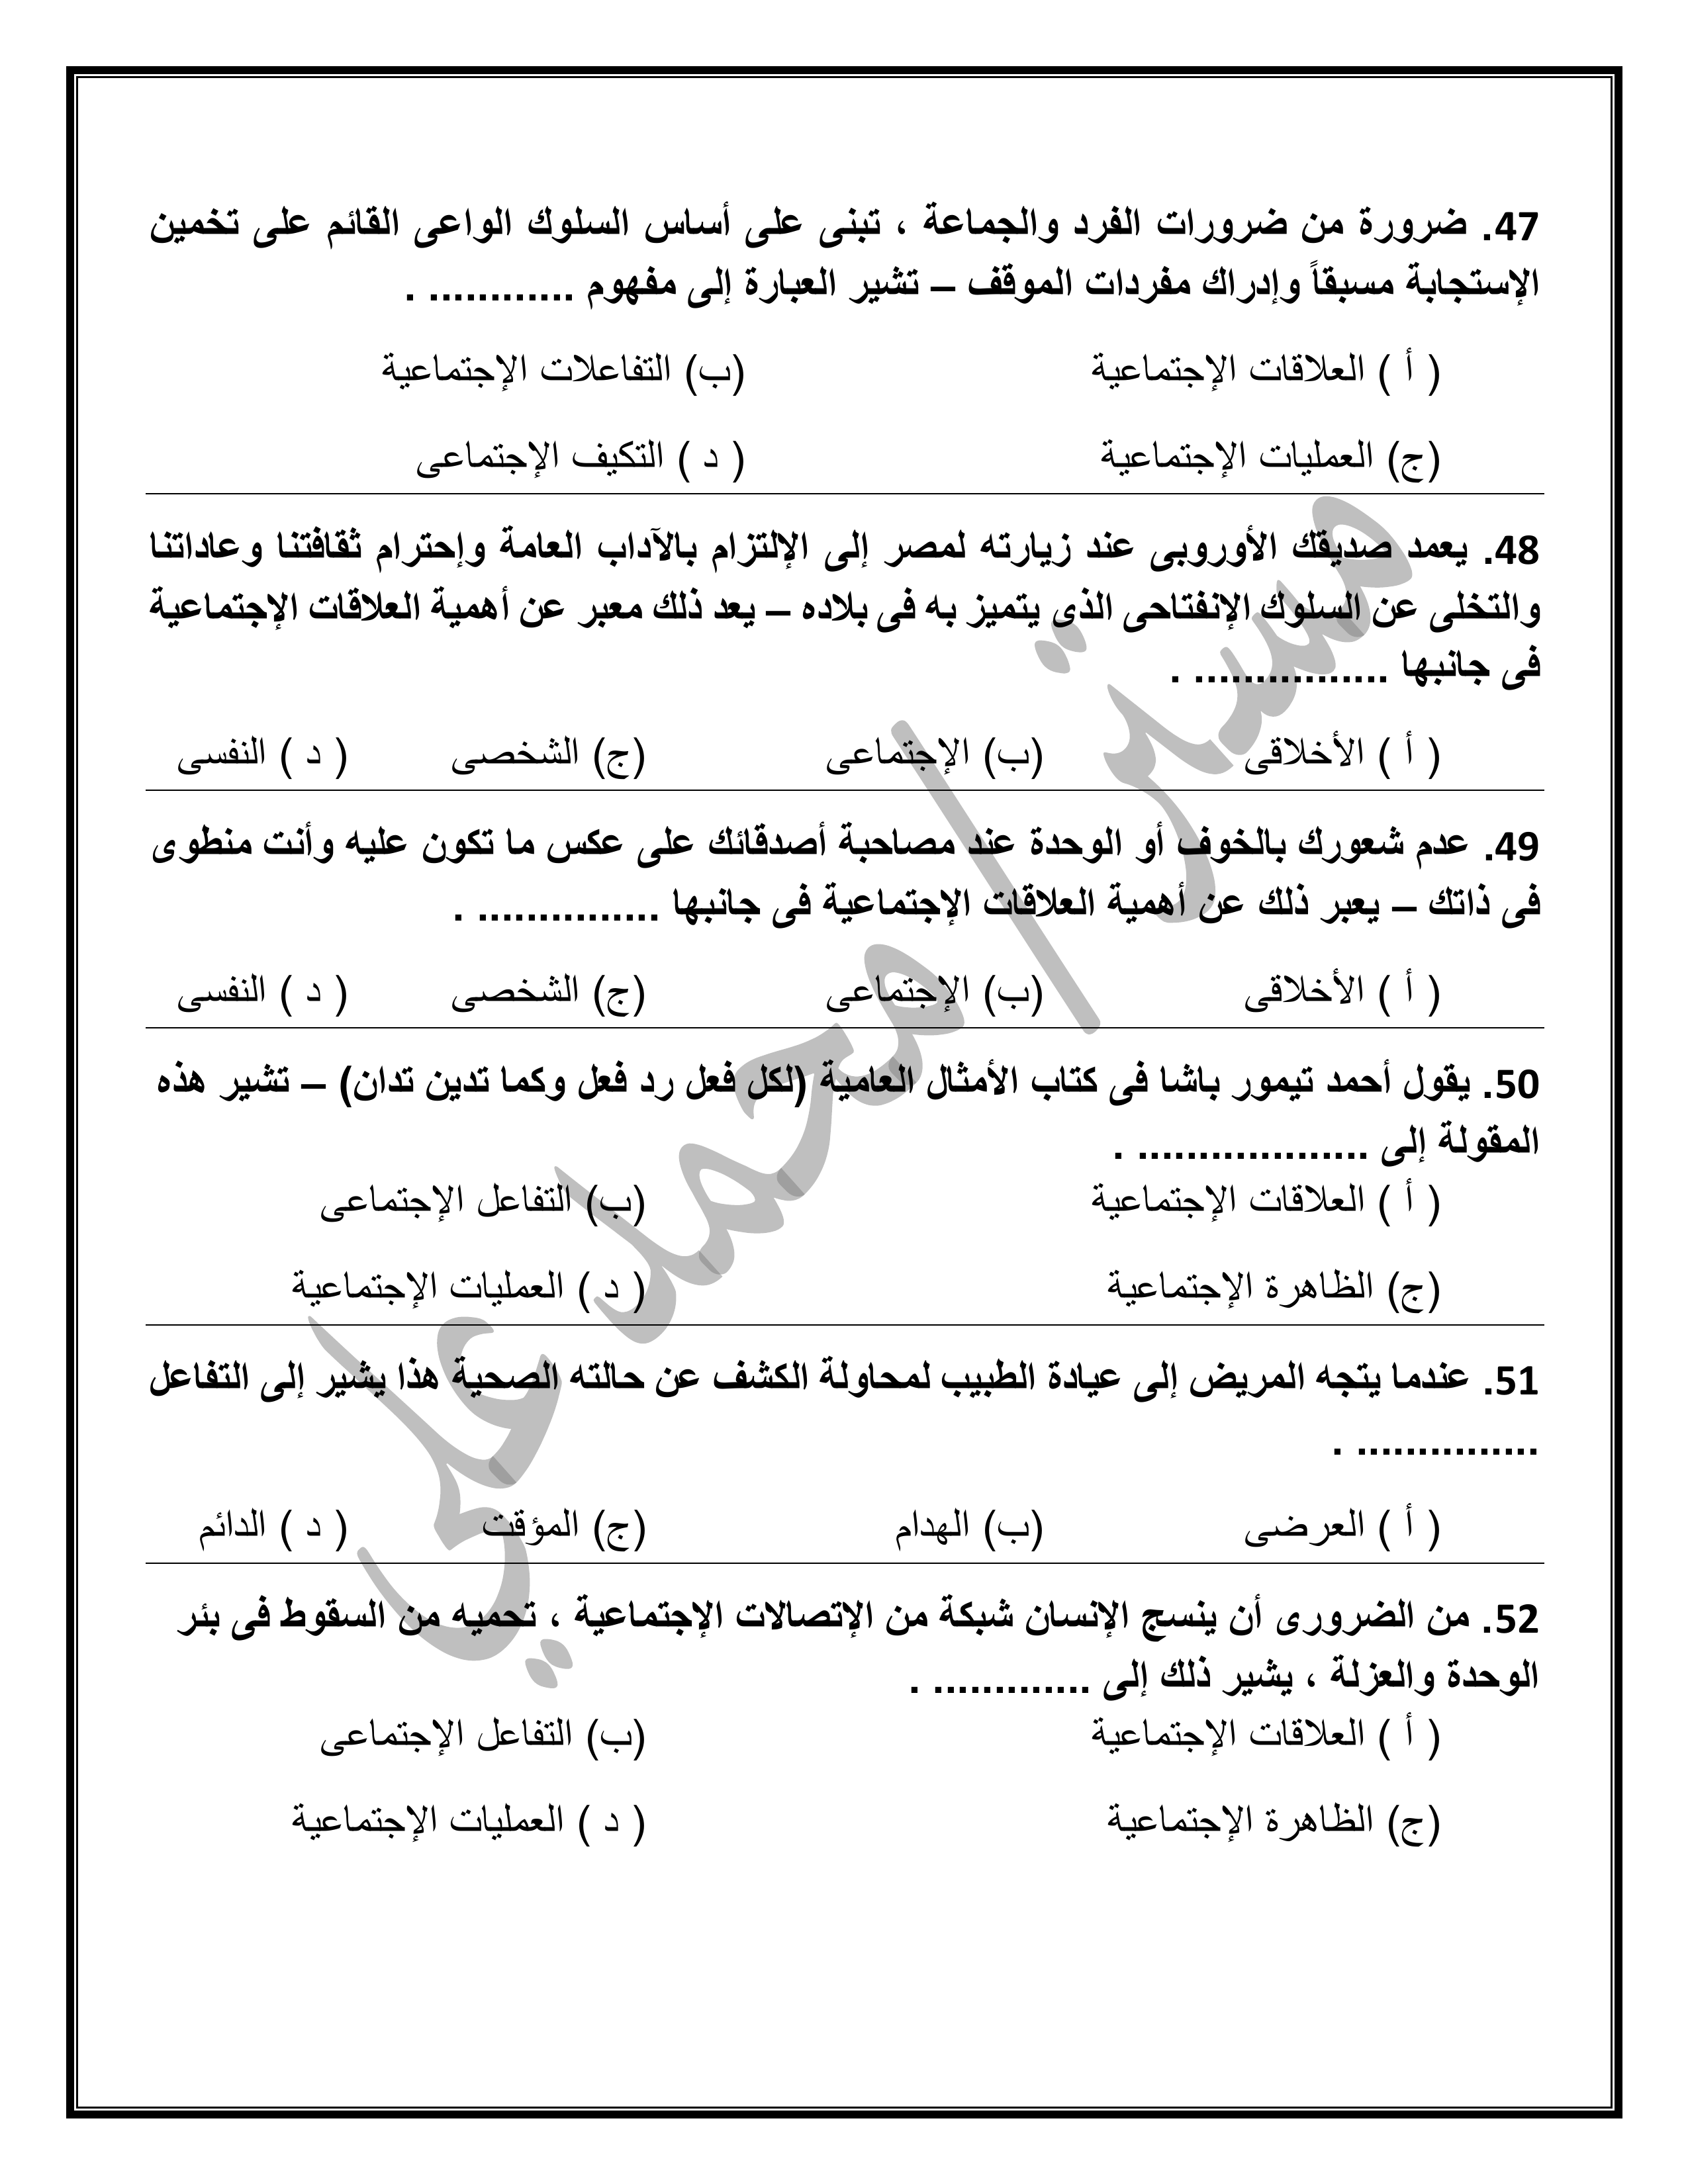 47. ضرورة من ضرورات الفرد والجماعة ، تبنى على أساس السلوك الواعى القائم على تخمين
الإستجابة مسبقاً وإدراك مفردات الموقف – تشير العبارة إلى مفهوم ............ .
( أ ) العلاقات الإجتماعية (ب) التفاعلات الإجتماعية
(ج) العمليات الإجتماعية ( د ) التكيف الإجتماعى
48. يعمد صديقك الأوروبى عند زيارته لمصر إلى الإلتزام بالآداب العامة وإحترام ثقافتنا وعاداتنا
والتخلى عن السلوك الإنفتاحى الذى يتميز به فى بلاده – يعد ذلك معبر عن أهمية العلاقات الإجتماعية
فى جانبها ................ .
( أ ) الأخلاقى (ب) الإجتماعى (ج) الشخصى ( د ) النفسى
49. عدم شعورك بالخوف أو الوحدة عند مصاحبة أصدقائك على عكس ما تكون عليه وأنت منطوى
فى ذاتك – يعبر ذلك عن أهمية العلاقات الإجتماعية فى جانبها ............... .
( أ ) الأخلاقى (ب) الإجتماعى (ج) الشخصى ( د ) النفسى
50. يقول أحمد تيمور باشا فى كتاب الأمثال العامية (لكل فعل رد فعل وكما تدين تدان) – تشير هذه
المقولة إلى ................... .
( أ ) العلاقات الإجتماعية (ب) التفاعل الإجتماعى
(ج) الظاهرة الإجتماعية ( د ) العمليات الإجتماعية
51. عندما يتجه المريض إلى عيادة الطبيب لمحاولة الكشف عن حالته الصحية هذا يشير إلى التفاعل
............... .
( أ ) العرضى (ب) الهدام (ج) المؤقت ( د ) الدائم
52. من الضرورى أن ينسج الإنسان شبكة من الإتصالات الإجتماعية ، تحميه من السقوط فى بئر
الوحدة والعزلة ، يشير ذلك إلى ............. .
( أ ) العلاقات الإجتماعية (ب) التفاعل الإجتماعى
(ج) الظاهرة الإجتماعية ( د ) العمليات الإجتماعية
مستر/محمد علي